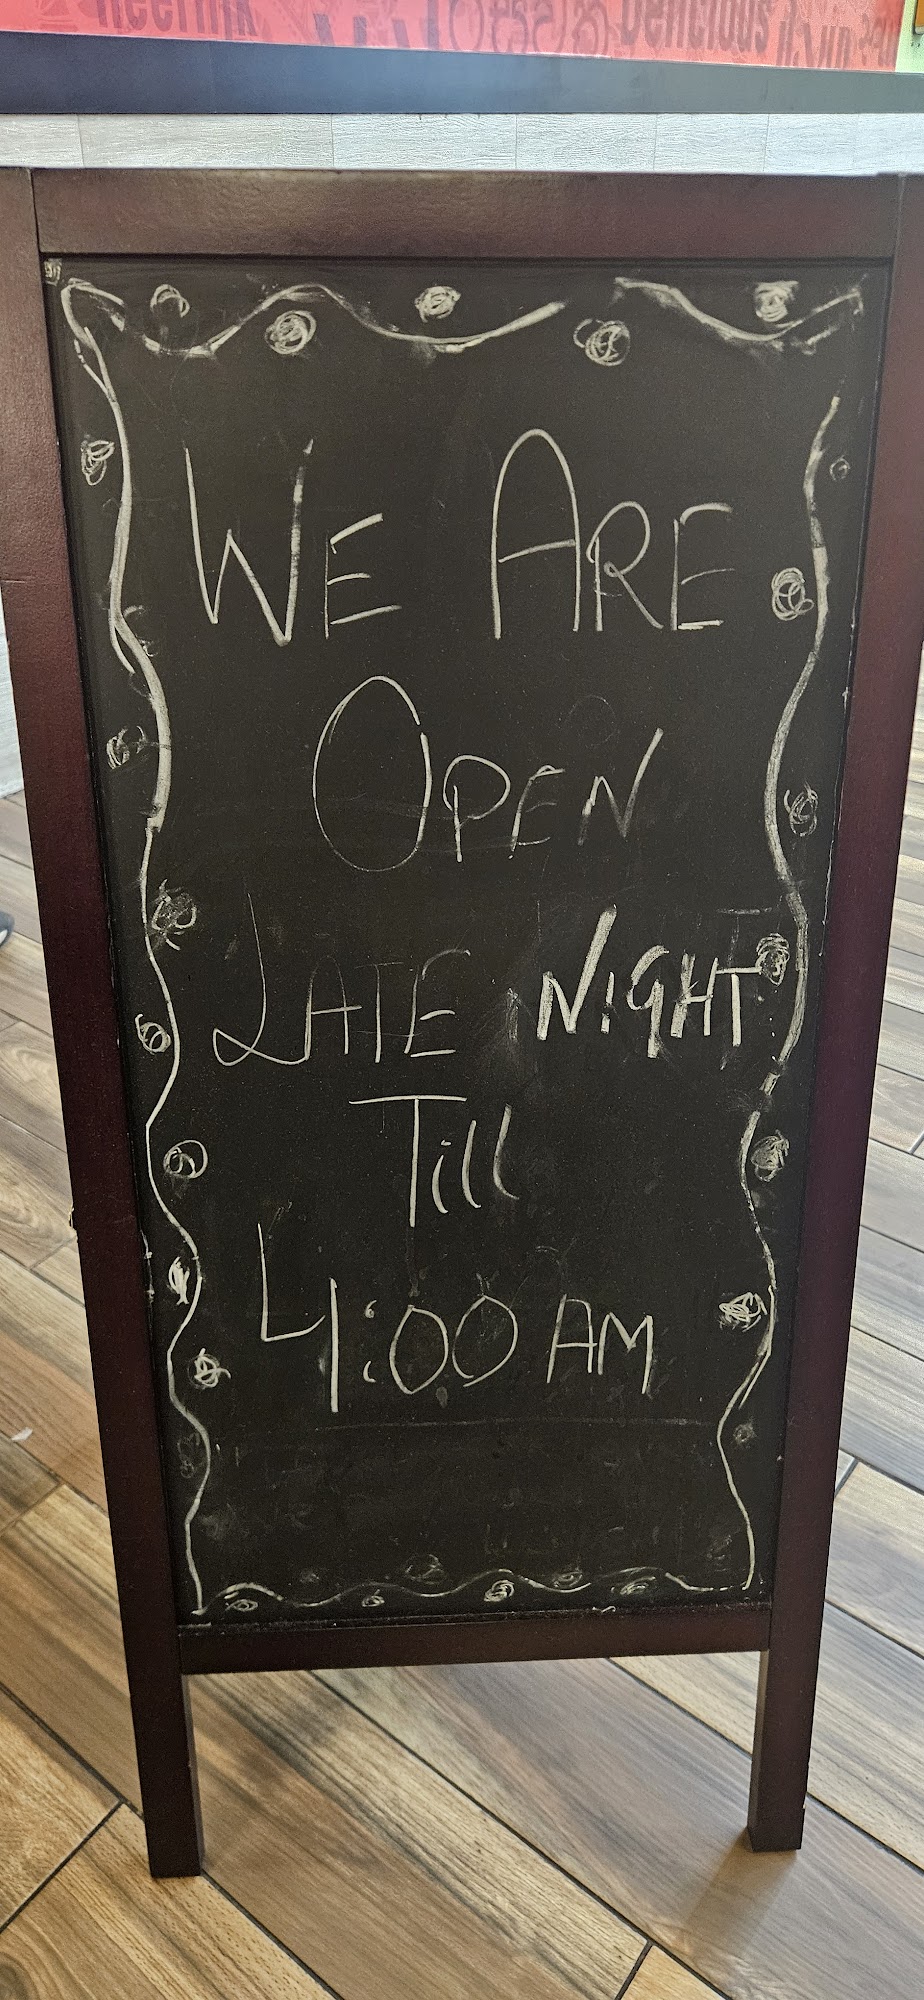 Delicious
WE ARE
OPEN
LATE NIGHT
Till
4:00 AM